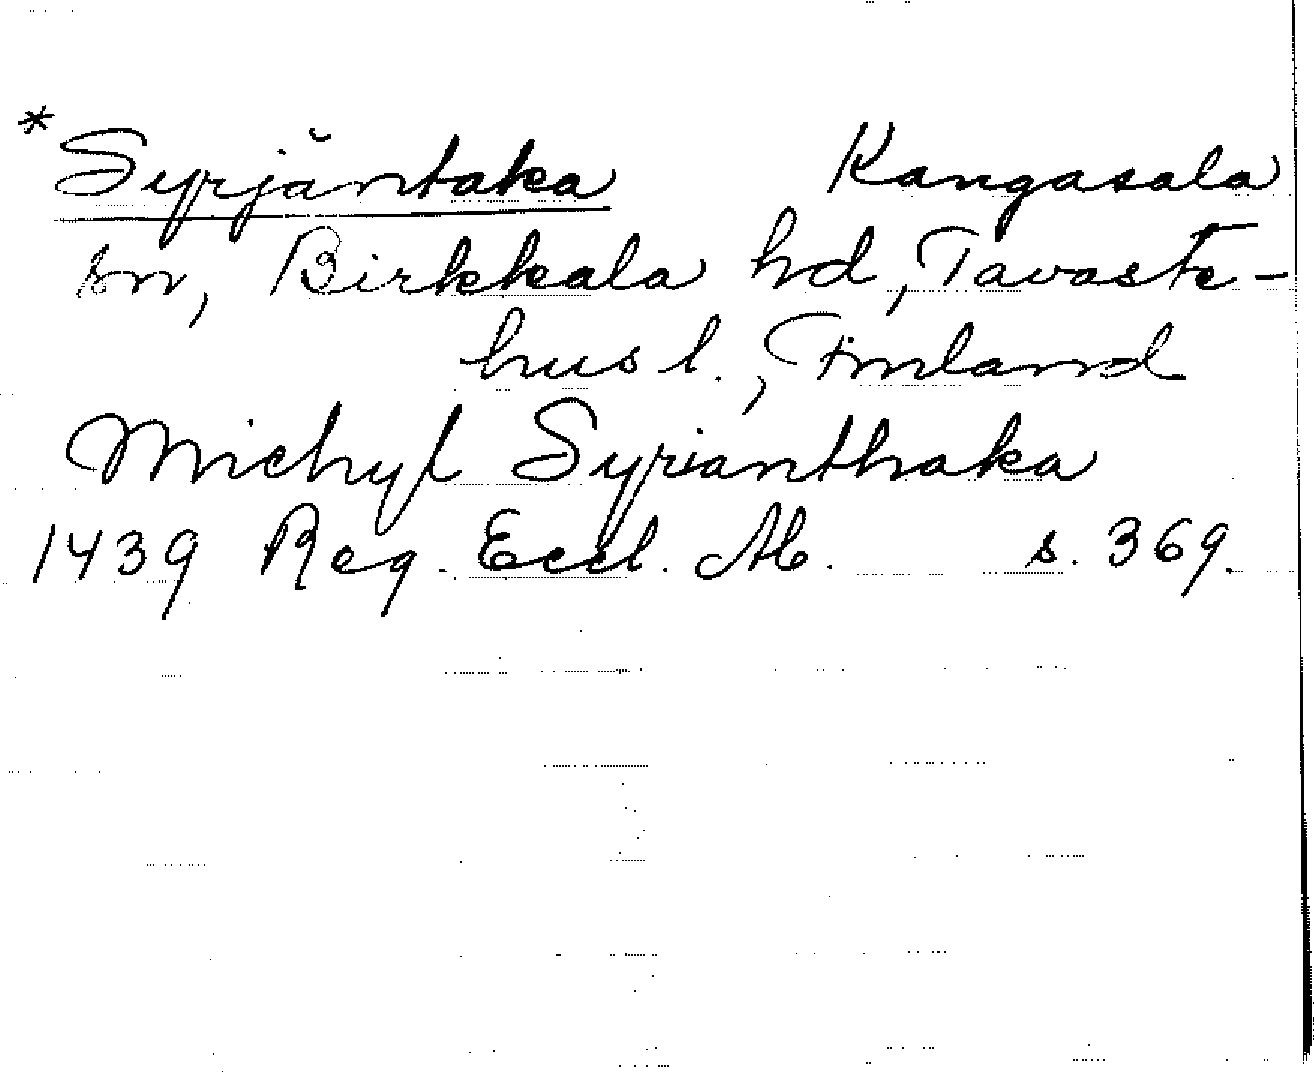 * Syrjäntaka Kangasala
sn, Birkkala hd, Tavaste-
hus l., Finland
Michyl Syrianthaka
1439 Reg. Eccl. Ab. s. 369.